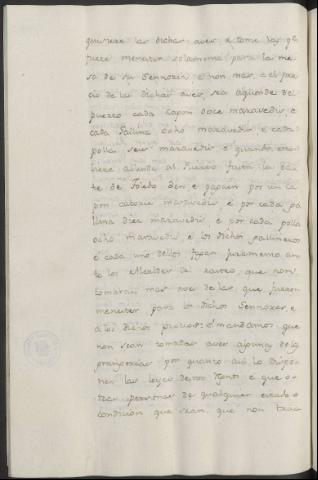 quisiere las dichas aves é tome las qe
fuere menester solamente para la me
sa de su Sennoria é non mas, e el pre
cio de las dichas aves, sea aquende del
puerto cada capon doce maravedis, e
cada Gallina ocho maravedis e cada
polla seis maravedis e quando estu
biere allende el Puerto fasta la par
te de Toledo den e paguen por un ca
pon catorce maravedis, é por cada ga
llina diez maravedis, é por cada polla
ocho maravedis, é los dichos gallineros
é cada uno dellos fagan juramento an
te los Alcaldes del rastro, que non
tomaran mas aves de las que fueren
menester para los dichos Sennores, e
a los dichos precios: é mandamos que
non sean tomadas aves algunas de las
por quanto asi lo dispo
nen las leyes destos e que o
tras personas de qualquier estado o
condicion que sean, que non